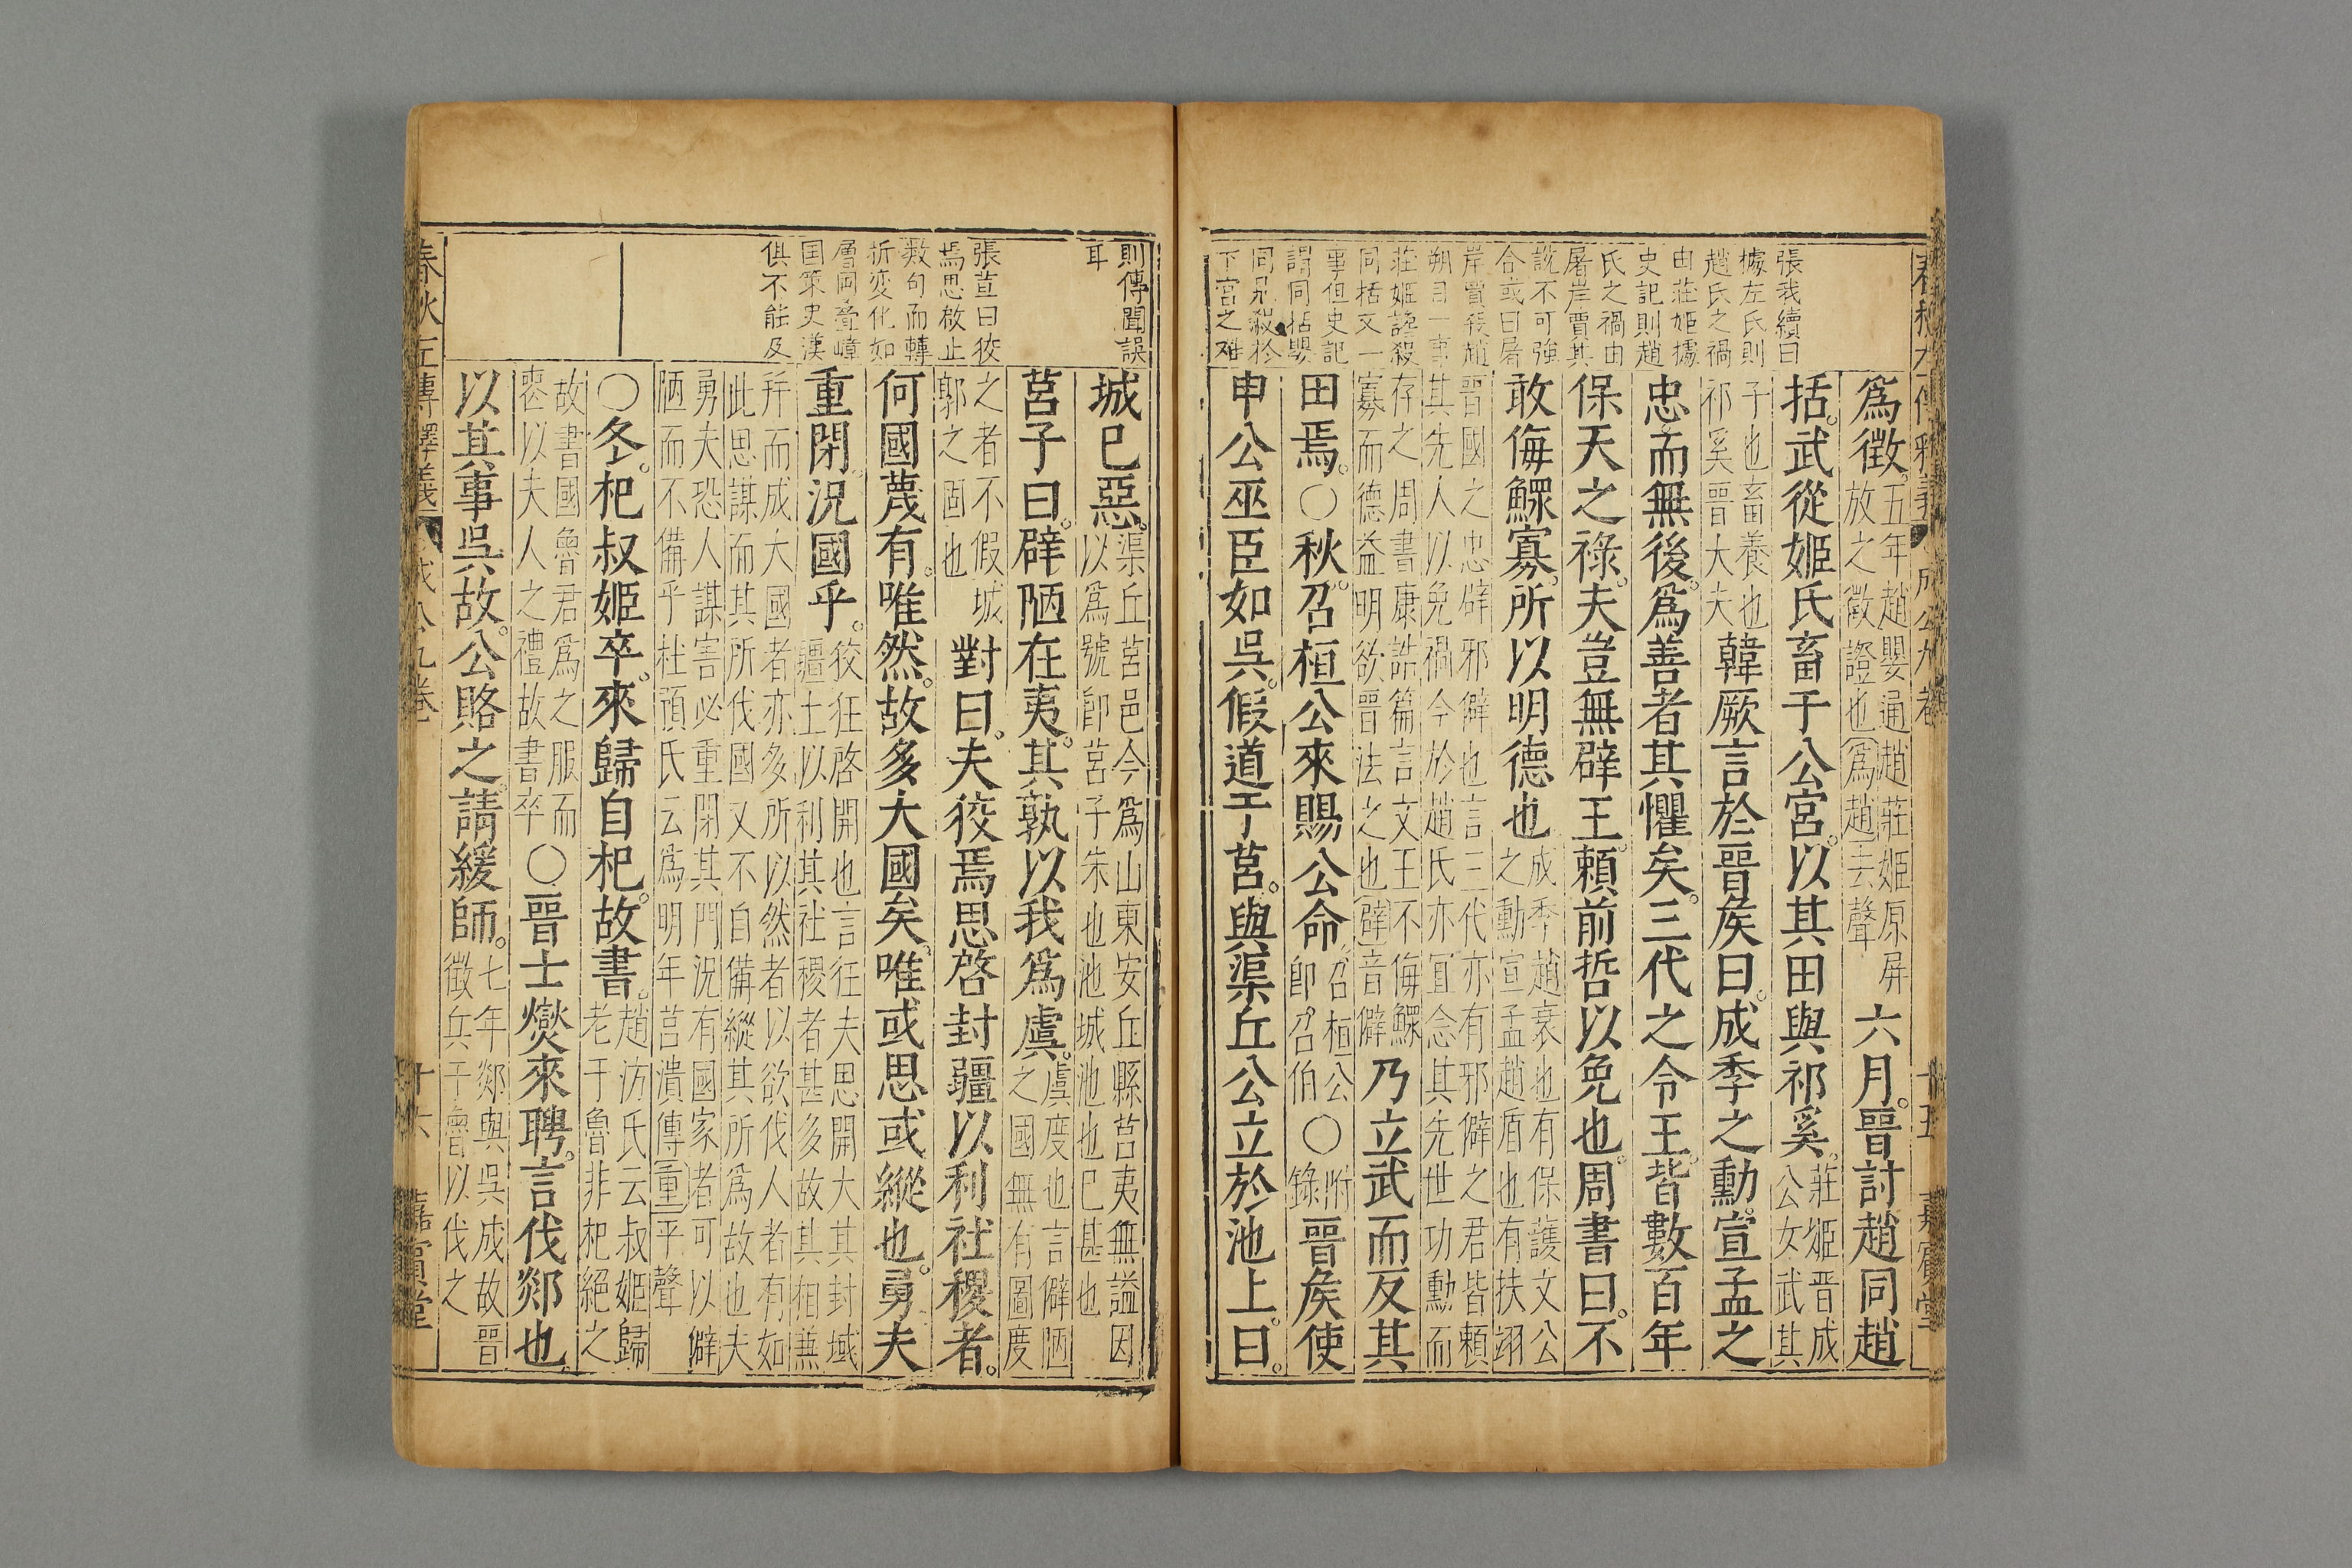 春秋左傳釋義 成公九卷 十五 嘉賓堂
張我續曰
據左氏則
趙氏之禍
由莊姬據
史記則趙
氏之禍由
屠岸賈其
說不可強
合或曰屠
岸賈殺趙
朔自一事
莊姬譖殺
同括又一
事但史記
謂同括嬰
同見殺於
下宮之难
為徵。五年趙嬰通趙莊姬原屏放之徵證也為趙去聲六月。晉討趙同趙
括。武從姬氏畜于公宮。以其田與祁奚。莊姬晉成公女武其
子也畜養也祁奚晉大夫韓厥言於晉矦曰。成季之勳。宣孟之
忠。而無後。為善者其懼矣。三代之令王。皆數百年
保天之祿。夫豈無辟王。賴前哲以免也。周書曰。不
敢侮鰥寡。所以明德也成季趙衰也有保護文公之勳宣孟趙盾也有扶翊
晉國之忠辟邪僻也言三代亦有邪僻之君皆賴其先人以免禍今於趙氏亦宜念其先世功勳而
存之周書康誥篇言文王不侮鰥寡而德益明欲晉法之也辟音僻乃立武而反其
田焉。○秋。召桓公來賜公命召桓公即召伯○附錄晉矦使
申公巫臣如吳。假道于莒。與渠丘公立於池上。曰。
則傳聞誤
耳
張荁曰狡
焉思啟止
数句而轉
折变化如
層岡疊嶂
国策史漢
俱不能及
城巳惡。渠丘莒邑今為山東安丘縣莒夷無謚因以為號即莒子朱也池城池也巳甚也
莒子曰。辟陋在夷。其孰以我為虞。虞度也言僻陋之國無有圖度
之者不假城郭之固也對曰。夫狡焉思啓封疆以利社稷者。
何國蔑有。唯然。故多大國矣。唯或思或縱也。勇夫
重閉。況國乎。狡狂啓開也言狂夫思開大其封域疆土以利其社稷者甚多故其相兼
并而成大國者亦多所以然者以欲伐人者有如此思謀而其所伐國又不自備縱其所為故也夫
勇夫恐人謀害必重閉其門況有國家者可以僻陋而不備乎杜預氏云為明年莒潰傳重平聲
○冬。杞叔姬卒。來歸自杞。故書。趙汸氏云叔姬歸老于魯非杞絕之
故書國魯君為之服而喪以夫人之禮故書卒○晉士燮來聘。言伐郯也
以其事吳故。公賂之。請緩師。七年郯與吳成故晉徵兵于魯以伐之
春秋左傳釋義 成公九卷 十六 嘉賓堂